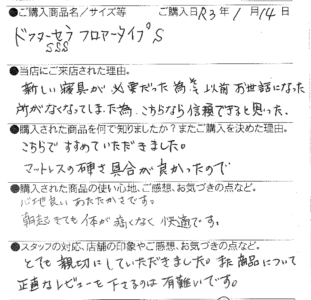 ●ご購入商品名／サイズ等　ご購入日R3年1月14日
ドクターセラ フロアータイプS
SSS
●当店にご来店された理由。
新しい寝具が必要だった為と、以前お世話になった
所がなくなってしまった為、こちらなら信頼できると思った。
●購入された商品を何で知りましたか？またご購入を決めた理由。
こちらですすめていただきました。
マットレスの硬さ具合が良かったので
●購入された商品の使い心地、ご感想、お気づきの点など。
心地良いあたたかさです。
朝起きても体が痛くなく快適です。
●スタッフの対応、店舗の印象やご感想、お気づきの点など。
とても親切にしていただきました。また商品について
正直なレビューを下さるのは有難いです。